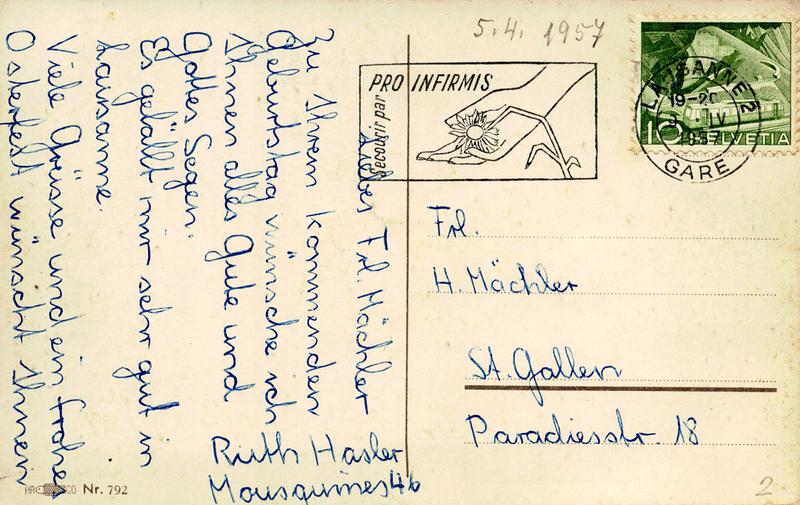 5.4. 1957
PRO INFIRMIS
Secourir par
LAUSANNE 2
19-20
IV
1957
GARE
10 HELVETIA
Liebes Frl. Mächler
Zu Ihrem kommenden
Geburtstag wünsche ich
Ihnen alles Gute und
Gottes Segen.
Es gefällt mir sehr gut in
Lausanne.
Viele Grüsse und ein frohes
Osterfest wünscht Ihnen
Ruth Hasler
Mousquines 46
Frl.
H. Mächler
St. Gallen
Paradiesstr. 18
Nr. 792
2